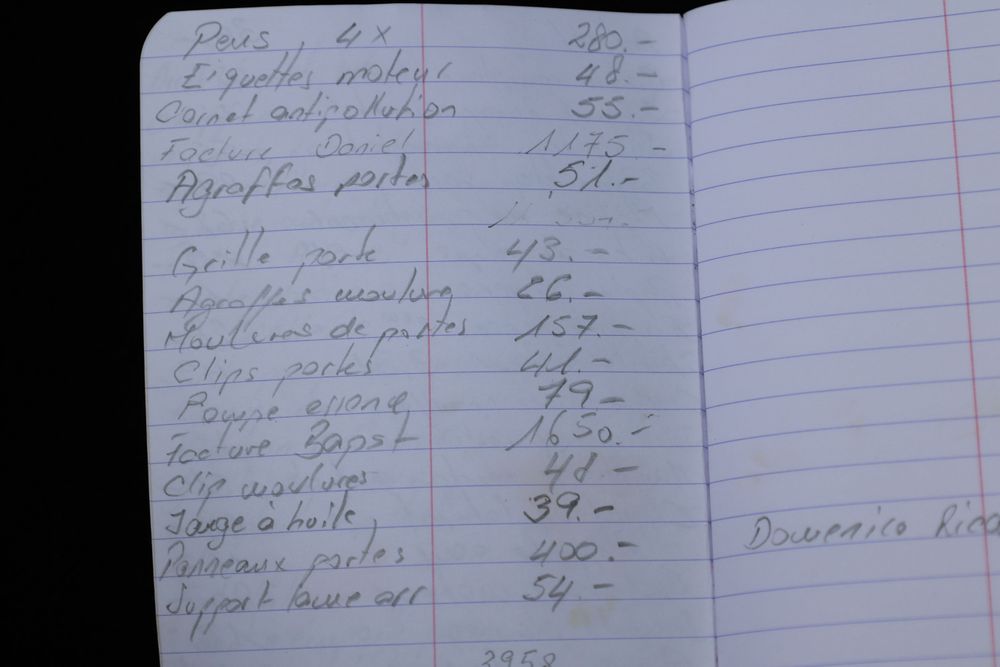 Peus, 4x 280.-
Eiquettes moteur 48.-
Carnet antipollution 55.-
Facture Daniel 1175.-
Agraffas portes 51.-
Grille porte 43.-
Agraffes moulure 26.-
Moulures de portes 157.-
Clips portes 41.-
Pompe 79-
Facture Bapst 1650.-
Clip moulures 48.-
Jauge à huile, 39.-
Panneaux portes 400.-
Support lame arr 54.-
3958
Domenico